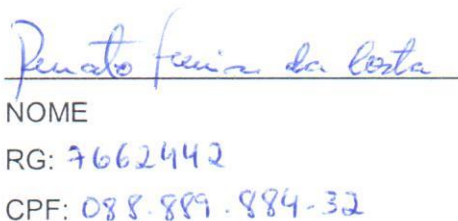 Renato Ferreira da Costa
NOME
RG: 7662442
CPF: 088.889.884-32